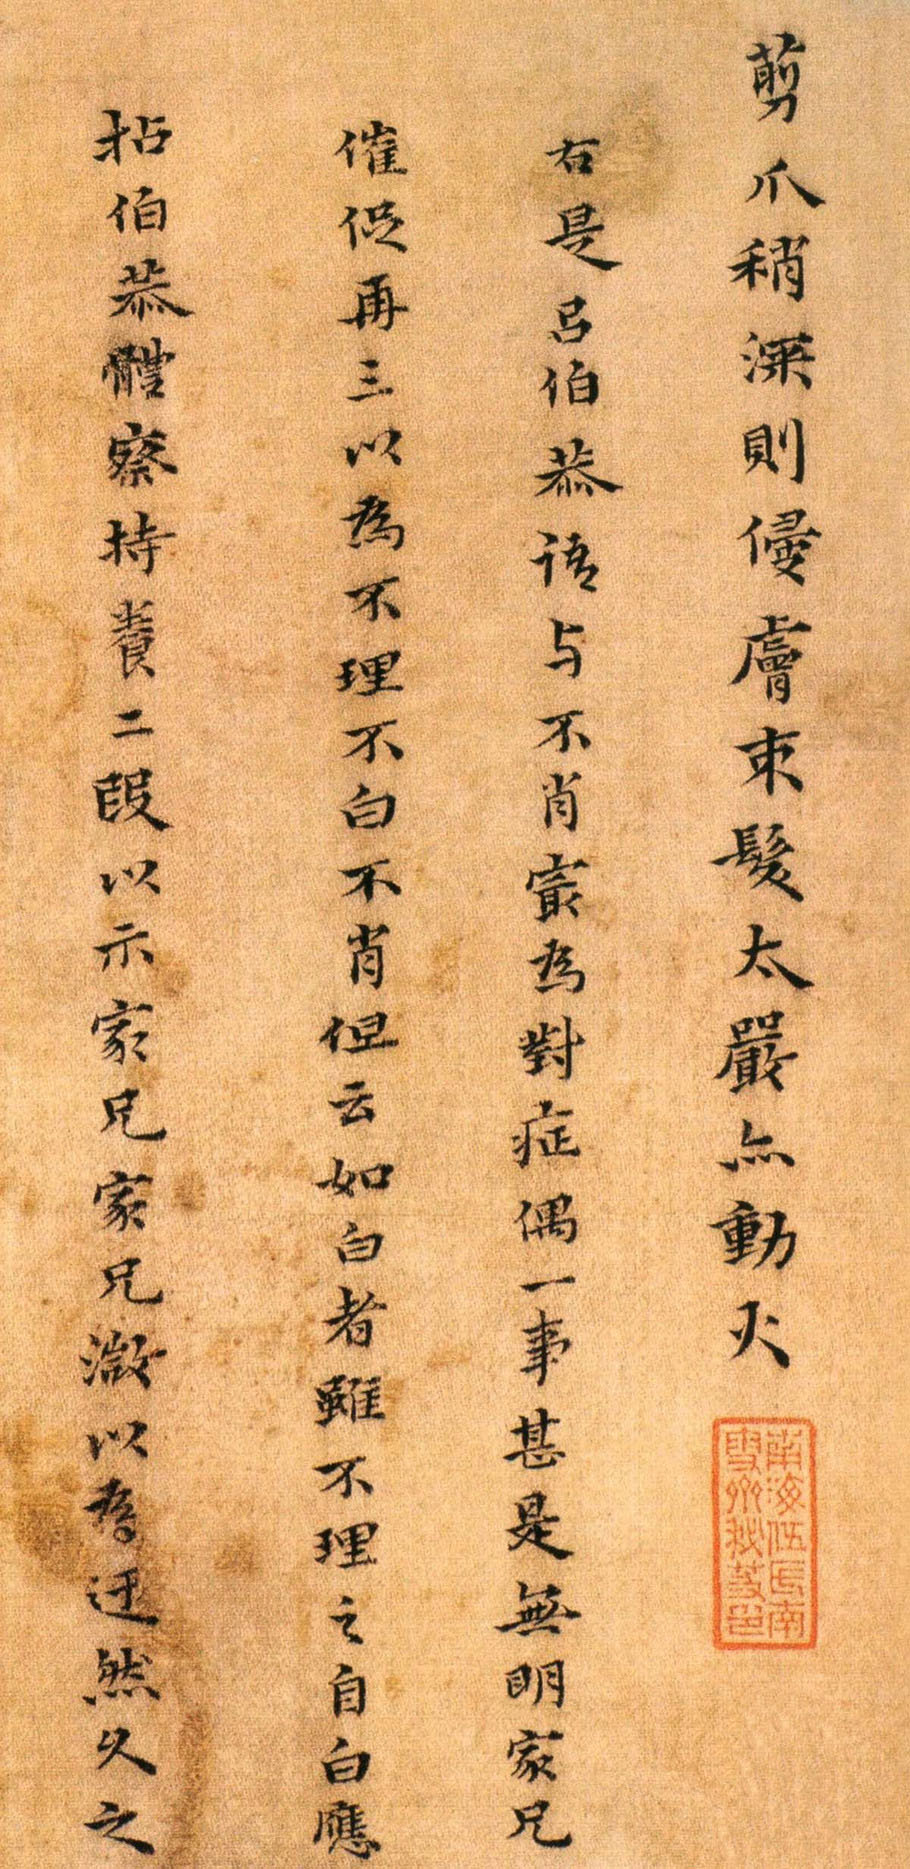 剪爪稍深則侵膚束髮太嚴亦動火
右是呂伯恭語与不肖寂為對症偶一事甚是無明家兄
催促再三以為不理不白不肖但云如白者雖不理之自白應
拈伯恭體察持養二段以示家兄家兄漵以為迂然久之
南海伍氏南
雪齋秘笈印